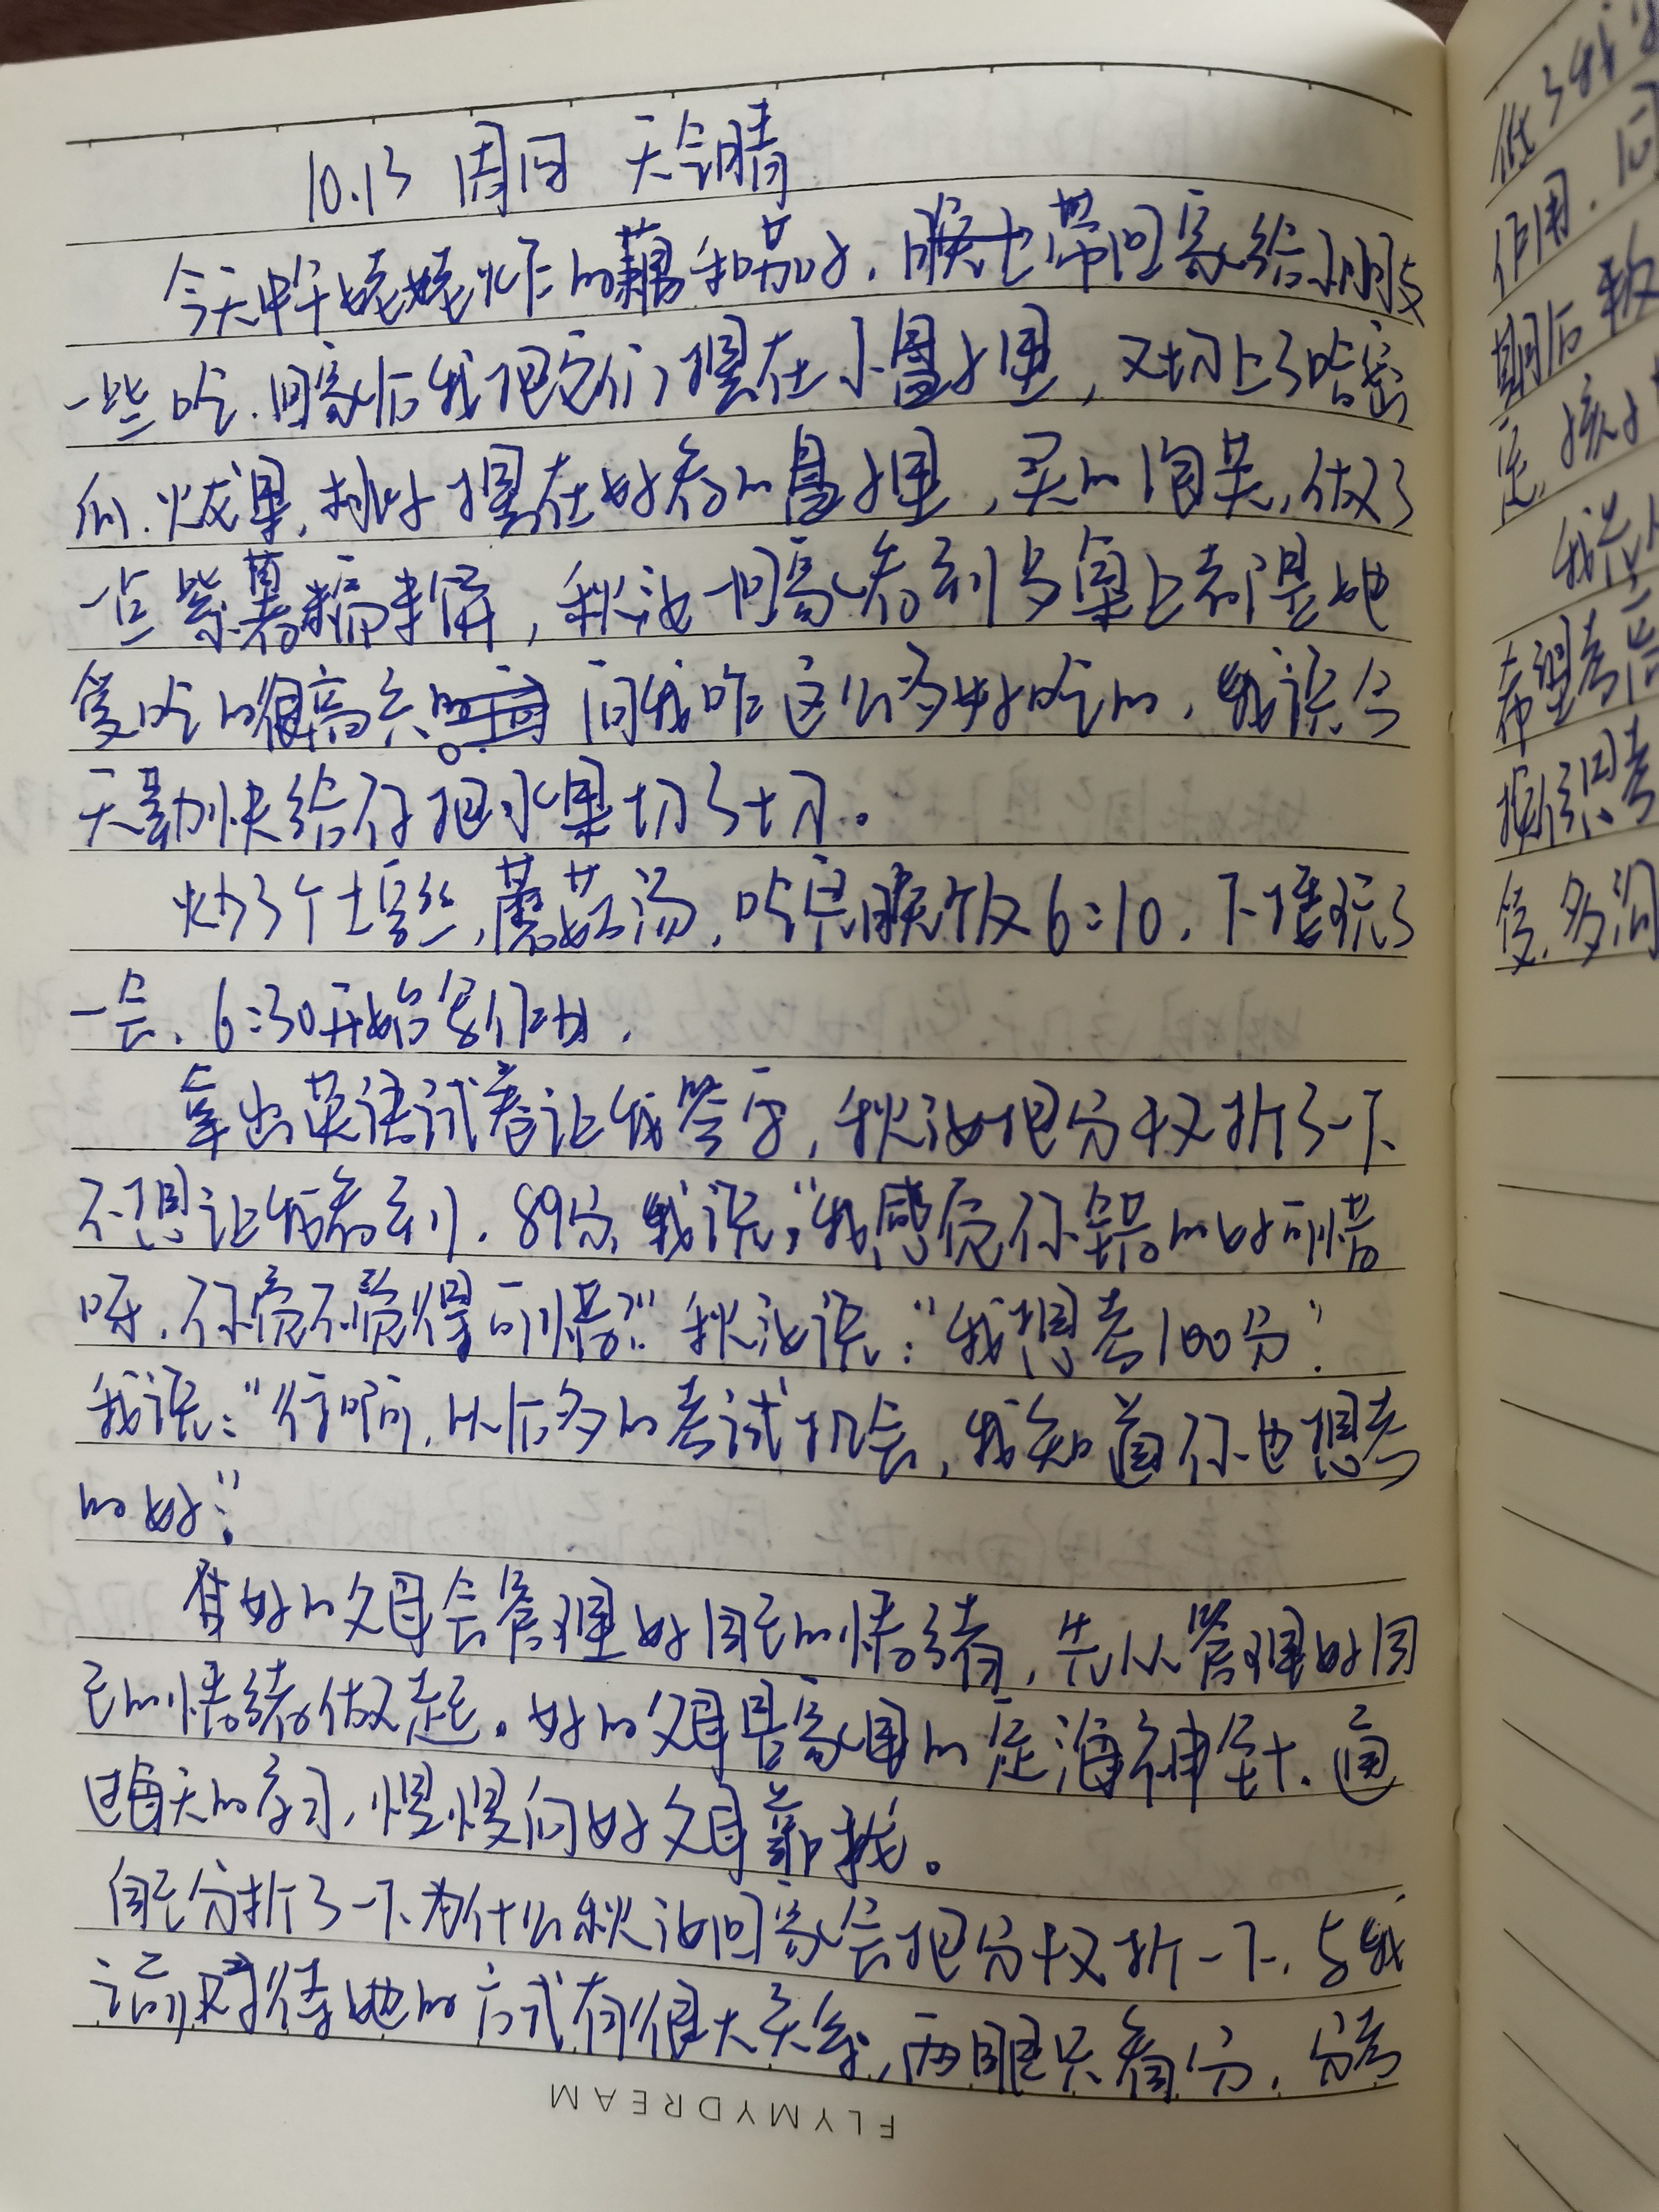 10.13 周四 天气晴
今天中午姥姥炸的藕和茄子,晚上带回家给小朋友
一些吃.回家后我把它们摆在小盘子里,又切上了哈密
瓜.火龙果,桃子摆在好看的盘子里,买的泡芙,做了
一点紫薯糯米饼,秋汝一回家看到与桌上都是她
爱吃的很高兴。问我咋这么多好吃的,我说今
天勤快给你把水果切了切。
炒了个土豆丝,蘑菇汤,吃完晚饭6:10.下楼玩了
一会.6:30开始写作业.
拿出英语试卷让我签字,秋汝把分叔折了一下
不想让我看到.89分,我说:“我感觉你错的好可惜
呀,你觉不觉得可惜?”秋汝说:“我想考100分”.
我说:“行啊,以后多的考试机会,我知道你也想考
的好.”
有好的父母会管理好自己的情绪,先从管理好自
己的情绪做起。好的父母是家里的定海神针.通
过每天的学习,慢慢向好父母靠拢。
自己分析了一下为什么秋汝回家会把分权折一下.与我
之前对待她的方式有很大关系,两眼只看分,分高
低了我
作用.同
期后
定,孩子
我
希望考
掘引思考
多沟
FLYMYDREAM